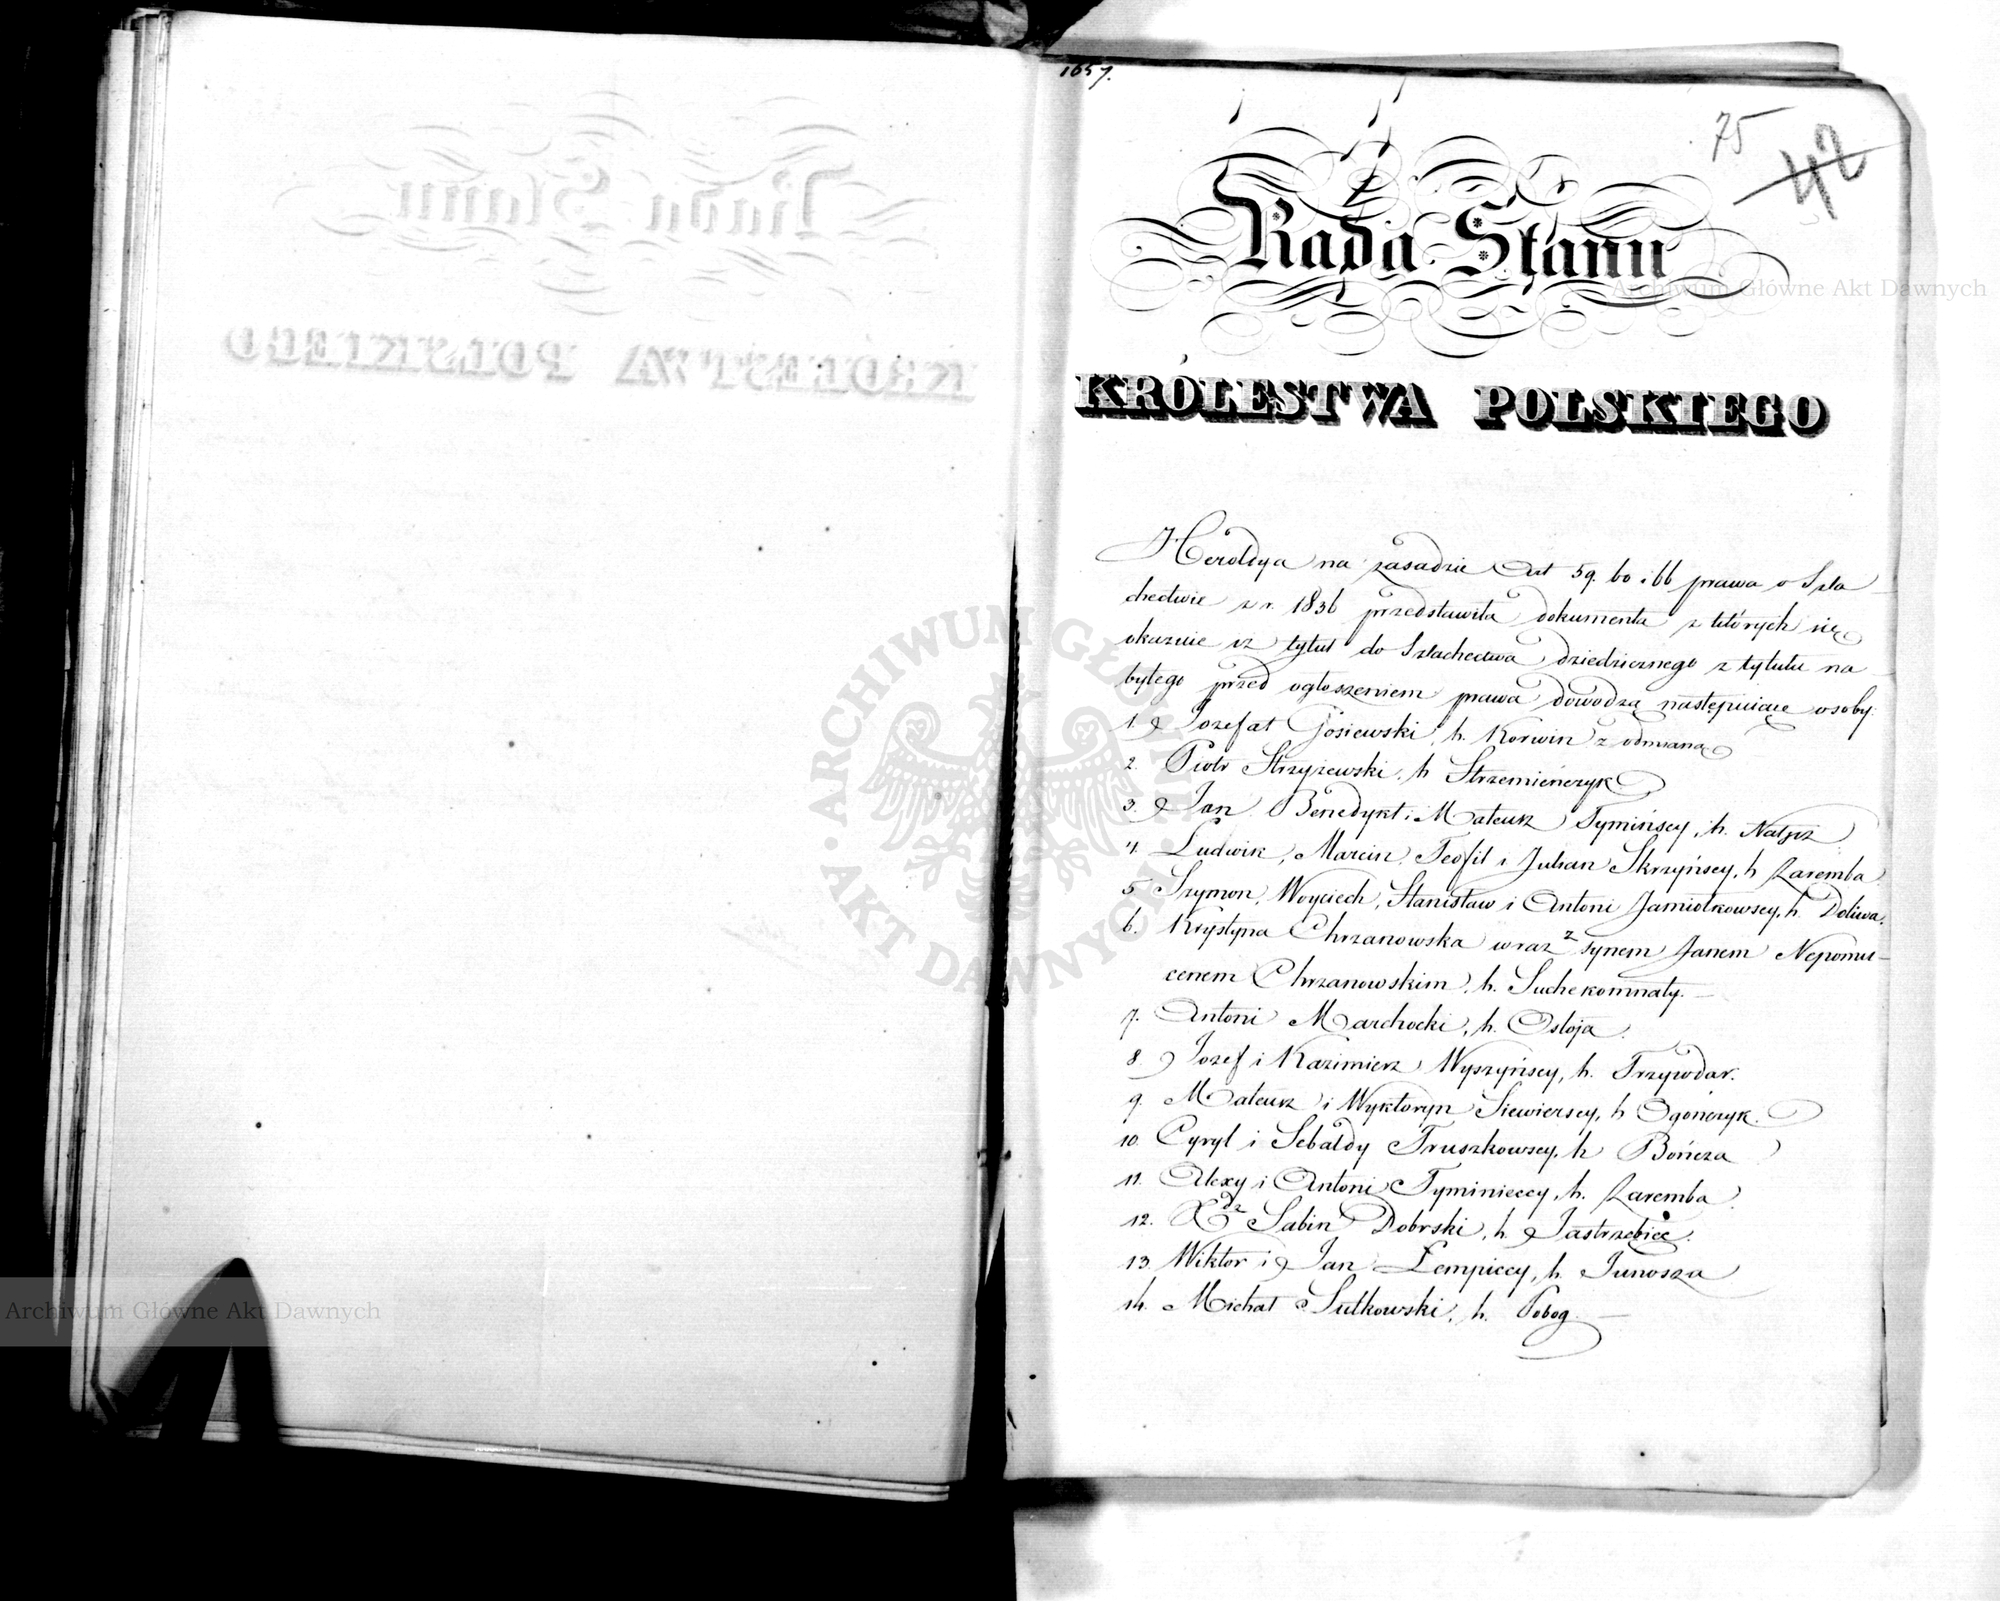 1657.
75
42
Rada Stanu
KRÓLESTWA POLSKIEGO
Heroldya na zasadzie Art 59. 60 i 66 prawa o Szla
chectwie z r. 1836 przedstawiła dokumenta z których się
okazuie iż tytuł do Szlachectwa dziedzicznego z tytułu na
bytego przed ogłoszeniem prawa dowodzą następuiące osoby:
1. Jozefat Gosiewski, h. Korwin z odmianą
2. Piotr Strzyżewski, h Strzemieńczyk
3. Jan Benedykt i Mateusz Tymińscy, h. Nałęcz
4. Ludwik, Marcin, Teofil i Julian Skrzyńscy, h Zaremba
5 Szymon, Woyciech, Stanisław i Antoni Jamiołkowscy, h. Doliwa.
6. Krystyna Chrzanowska wraz z synem Janem Nepomu-
cenem Chrzanowskim, h. Suchekomnaty.
7. Antoni Marchocki, h. Ostoja.
8 Jozef i Kazimierz Wyszyńscy, h. Trzywdar.
9. Mateusz i Wyktoryn Siewierscy, h Ogończyk.
10. Cyryl i Sebaldy Truszkowscy, h Bończa
11. Alexy i Antoni Tyminieccy, h. Zaremba.
12. Xdz Sabin Dobrski, h. Jastrzębiec.
13. Wiktor i Jan Łempiccy, h. Junosza
14. Michał Sutkowski, h. Pobog.
ARCHIWUM GŁÓWNE AKT DAWNYCH
Archiwum Główne Akt Dawnych
Archiwum Główne Akt Dawnych